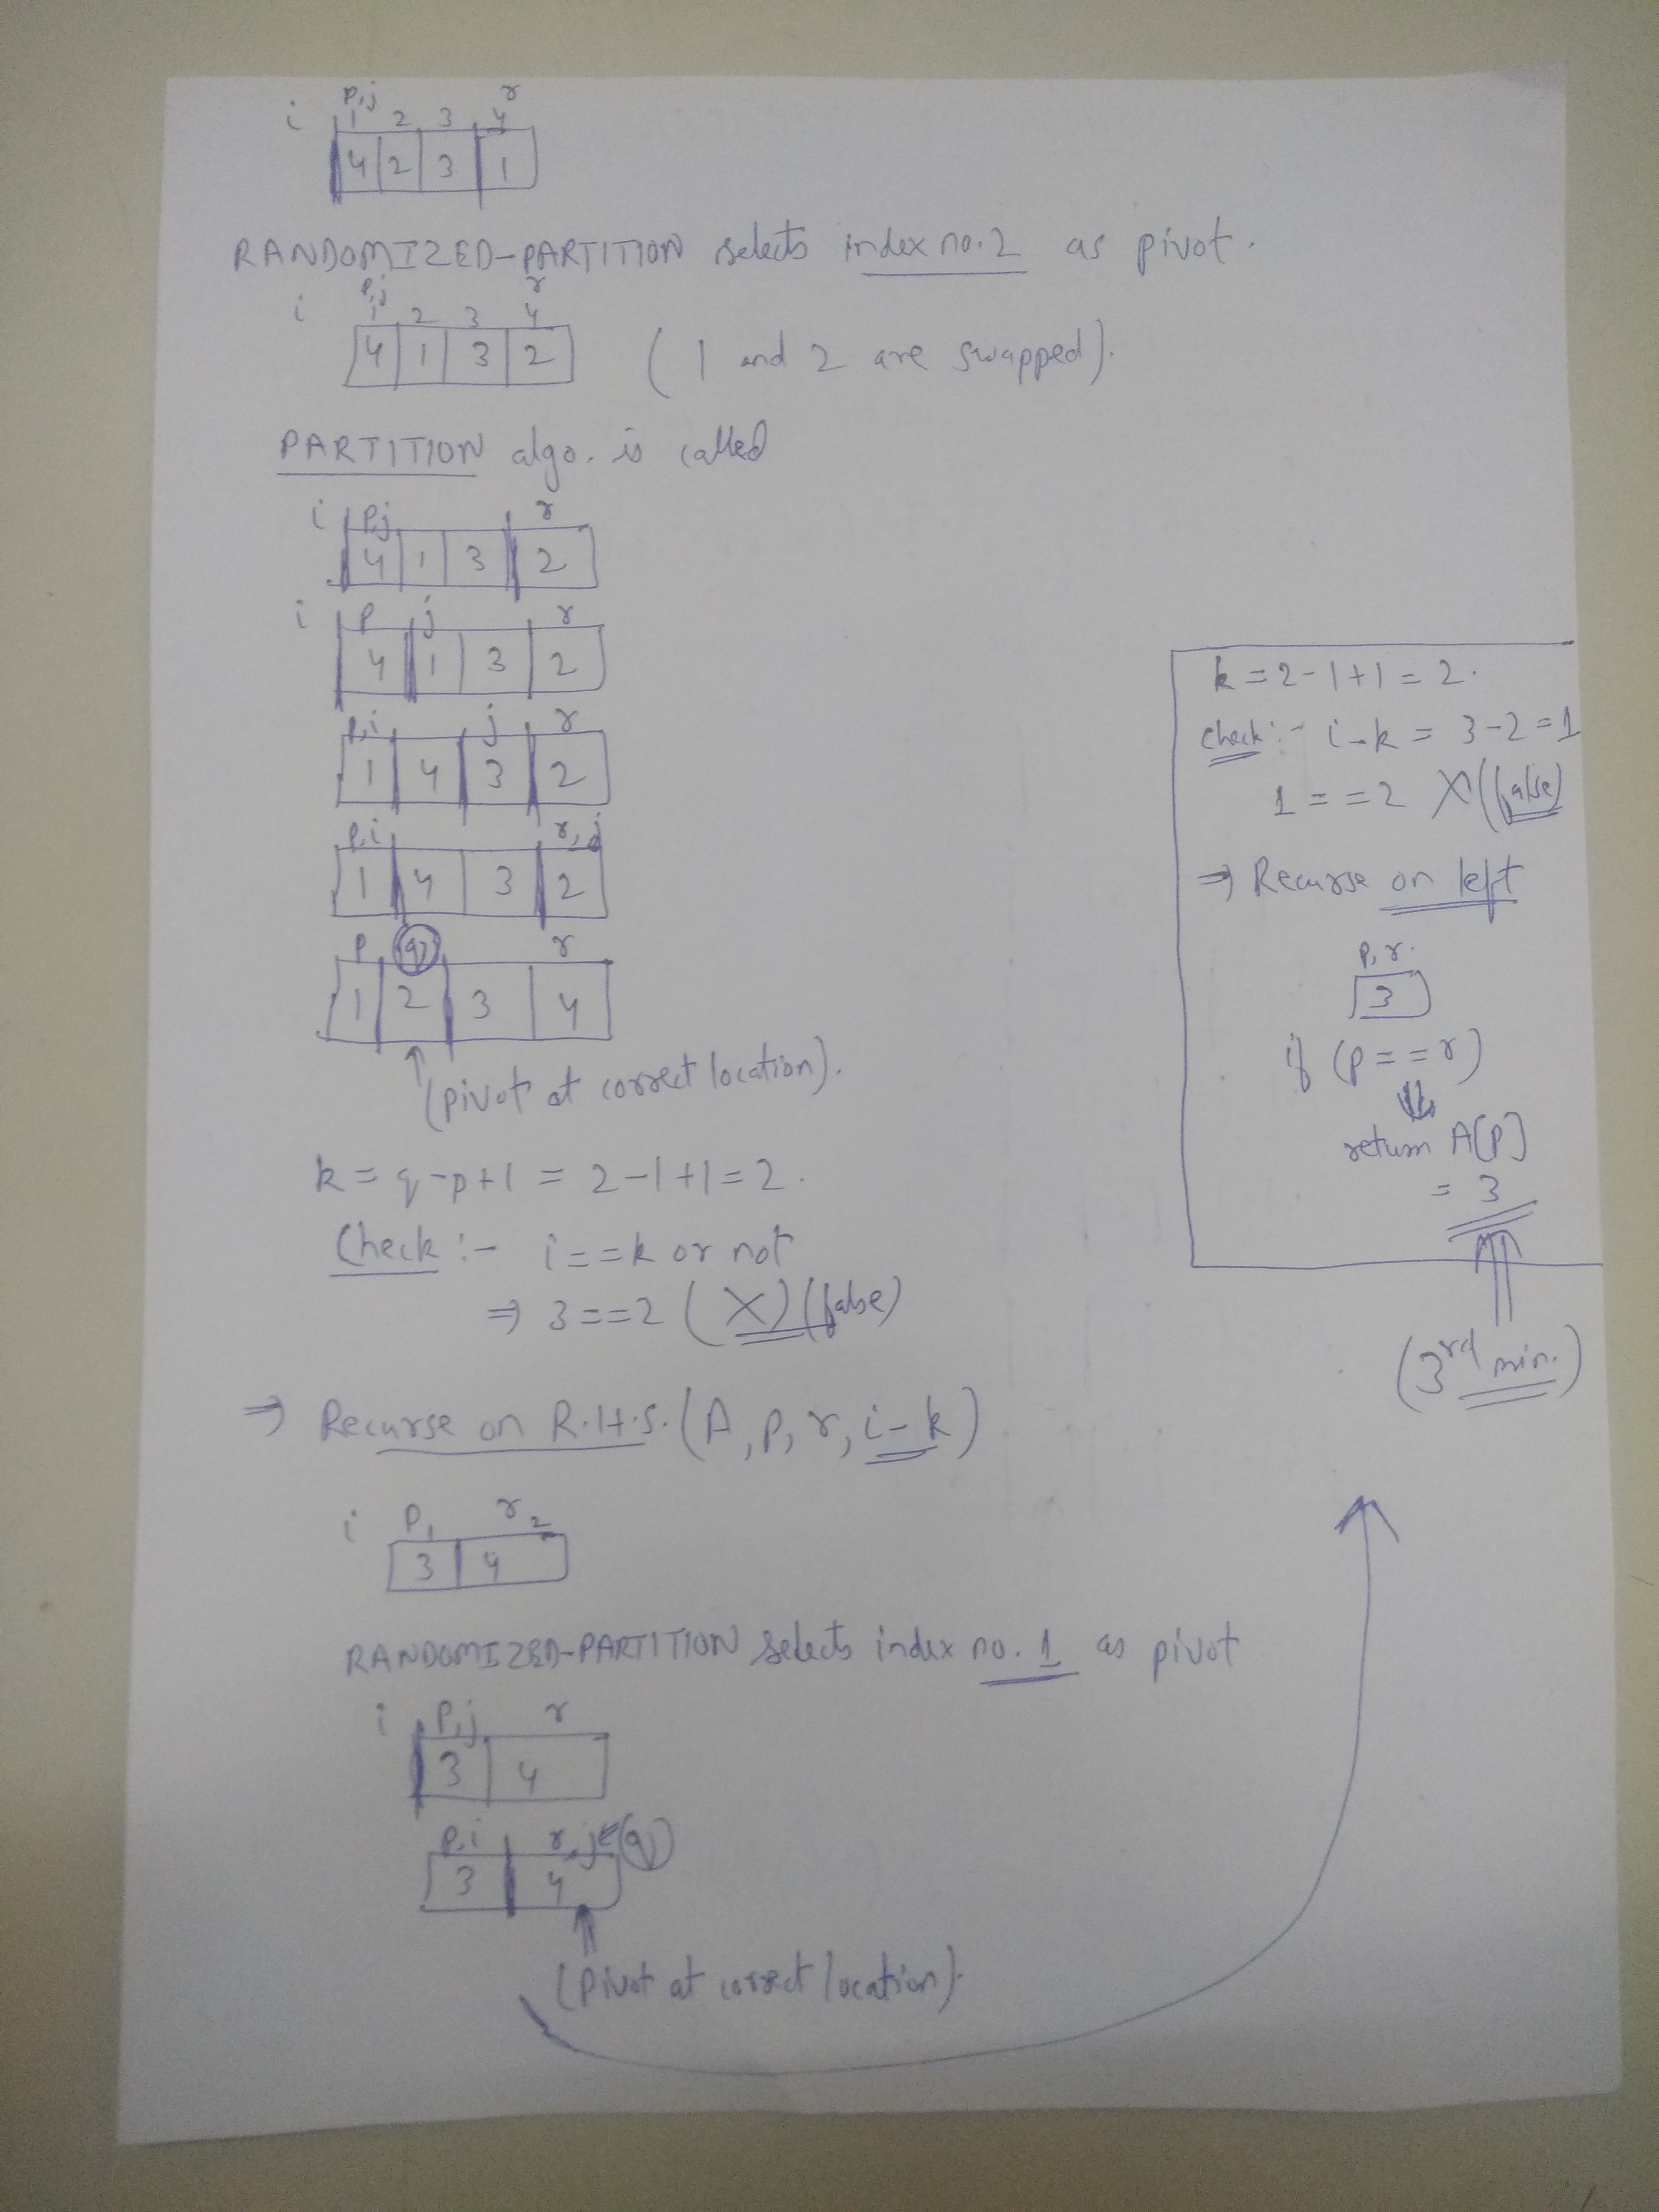 i p,j r
1 2 3 4
4 2 3 1
RANDOMIZED-PARTITION selects index no. 2 as pivot.
i p,j r
1 2 3 4
4 1 3 2 (1 and 2 are swapped).
PARTITION algo. is called
i p,j r
4 1 3 2
i p j r
4 1 3 2
p,i j r
1 4 3 2
p,i r,j
1 4 3 2
p q r
1 2 3 4
↑ (pivot at correct location).
k = q-p+1 = 2-1+1 = 2.
Check :- i==k or not
⇒ 3==2 (X) (false)
⇒ Recurse on R.H.S. (A, p, r, i-k)
i p1 r2
3 4
RANDOMIZED-PARTITION selects index no. 1 as pivot
i p,j r
3 4
p,i r,j ← q
3 4
↑ (Pivot at correct location).
k = 2-1+1 = 2.
check :- i-k = 3-2 = 1
1 == 2 X (false)
⇒ Recurse on left
p, r.
3
if (p == r)
⇓
return A[p]
= 3
(3rd min.)